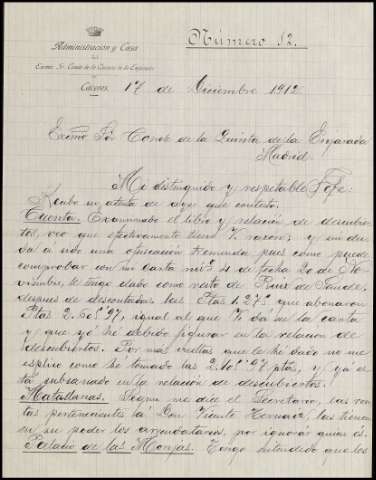 Número 12.
Administración y Casa
del
Excmo. Sr. Conde de la Quinta de la Enjarada
Cáceres
17 de Diciembre 1912
Excmo Sor Conde de la Quinta de la Enjarada
Madrid
Mi distinguido y respetable Jefe:
Recibo su atenta de ayer que contesto.
Cuenta. Examinado el libro y relación de descubier-
tos, veo que efectivamente tiene V. razon; y mi du-
da á sido una ofuscación tremenda pues como puede
comprobar con mi carta nº de fecha 20 de No-
viembre, le tengo dado como resto de Ruiz de Sande,
despues de descontadas las Ptas que abonaron
Ptas igual al que V. dá en la carta
y que yó he debido figurar en la relacion de
descubiertos. Por mas vueltas que le he dado no me
esplico como he tomado las ptas, y ya es-
tá subsanado en la relación de descubiertos.
Matallanas. Segun me dice el Secretario, las ren-
tas pertenecientes á Don Vicente las tienen
en su poder los arrendatarios, por ignorar quien és.
Palacio de las Monjas. Tengo entendido que los